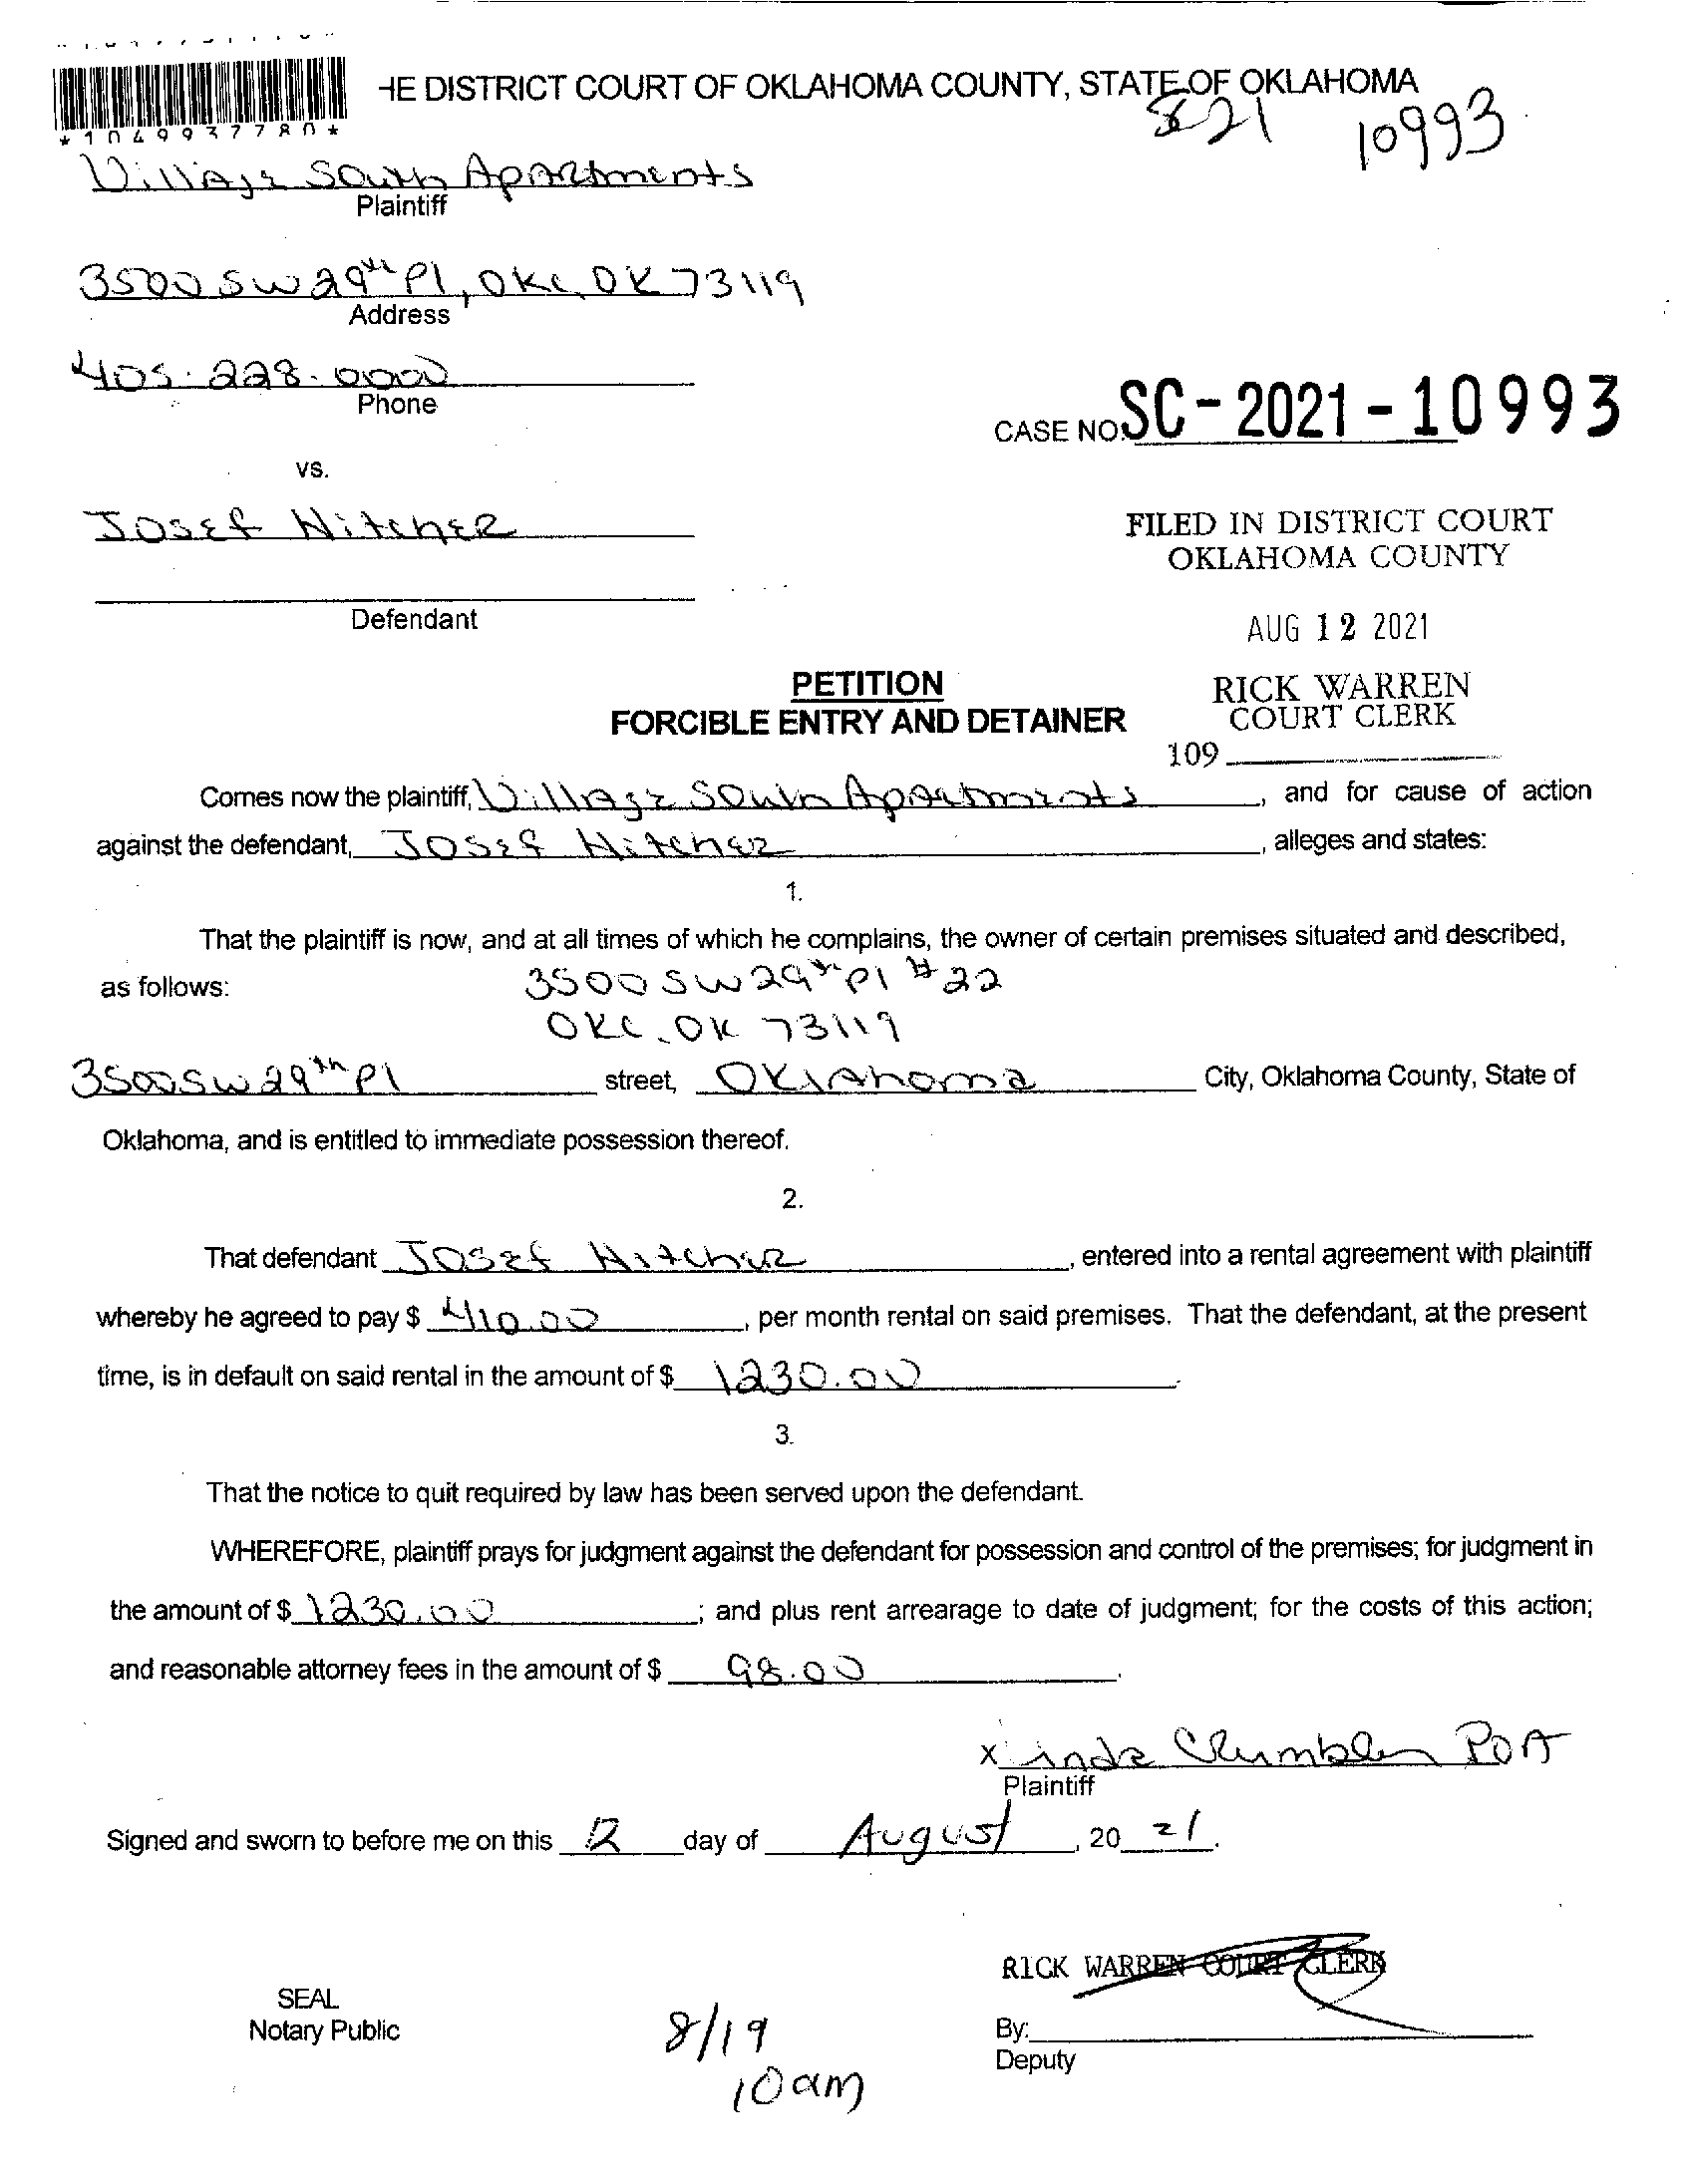 HE DISTRICT COURT OF OKLAHOMA COUNTY, STATE OF OKLAHOMA
*1049937780*
SC 21 10993
Village South Apartments
Plaintiff
3500 SW 29th Pl, OKC, OK 73119
Address
405-228-0000
Phone
CASE NO. SC-2021-10993
vs.
Josef Hitcher
FILED IN DISTRICT COURT
OKLAHOMA COUNTY
Defendant
AUG 12 2021
PETITION
RICK WARREN
FORCIBLE ENTRY AND DETAINER
COURT CLERK
109
Comes now the plaintiff, Village South Apartments, and for cause of action
against the defendant, Josef Hitcher, alleges and states:
1.
That the plaintiff is now, and at all times of which he complains, the owner of certain premises situated and described,
as follows: 3500 SW 29th Pl #22
OKC, OK 73119
3500 SW 29th Pl street, Oklahoma City, Oklahoma County, State of
Oklahoma, and is entitled to immediate possession thereof.
2.
That defendant Josef Hitcher, entered into a rental agreement with plaintiff
whereby he agreed to pay $ 410.00, per month rental on said premises. That the defendant, at the present
time, is in default on said rental in the amount of $ 1230.00.
3.
That the notice to quit required by law has been served upon the defendant.
WHEREFORE, plaintiff prays for judgment against the defendant for possession and control of the premises; for judgment in
the amount of $ 1230.00; and plus rent arrearage to date of judgment; for the costs of this action;
and reasonable attorney fees in the amount of $ 98.00.
x POA
Plaintiff
Signed and sworn to before me on this 12 day of August, 20 21.
RICK WARREN COURT CLERK
SEAL
Notary Public
8/19
10am
By:
Deputy